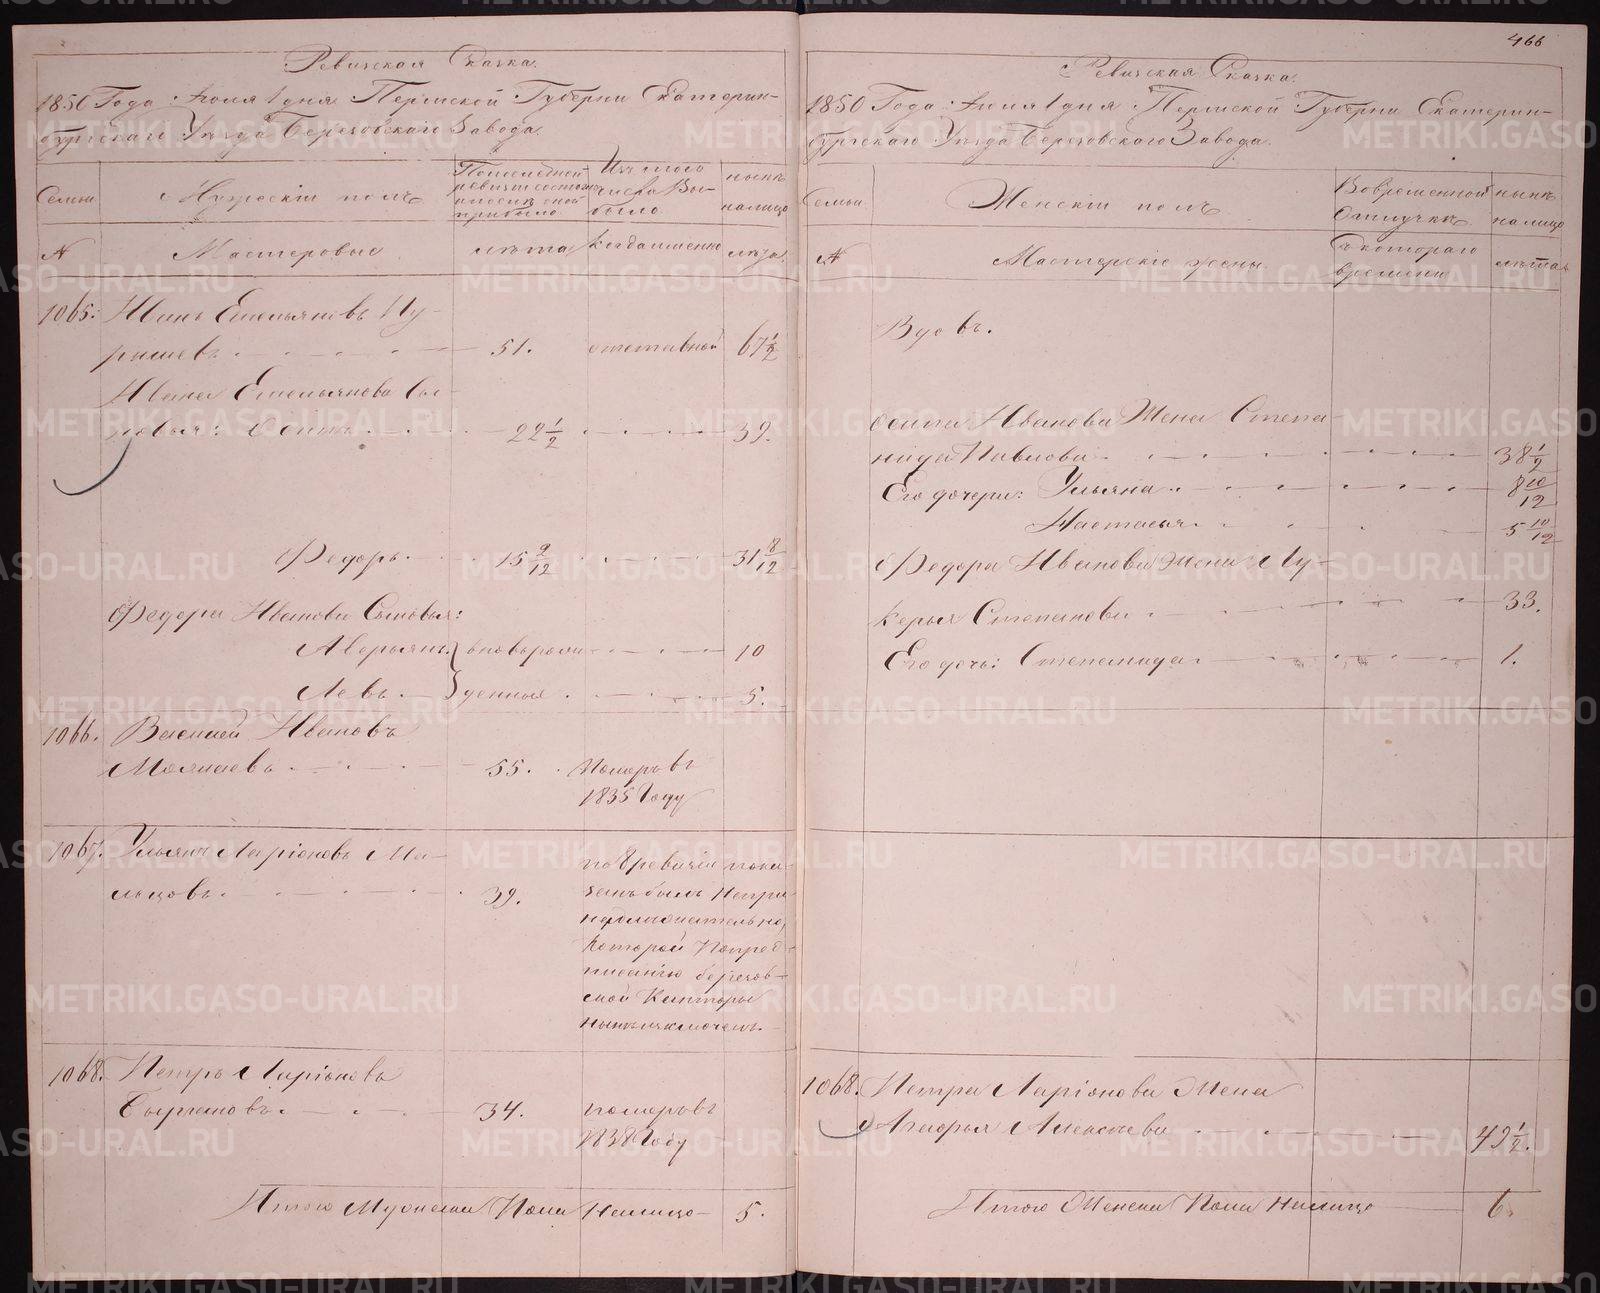 466
Ревизская Сказка.
1850 Года Июня 1 дня Пермской Губерни Екатерин-
бургскаго Уезда Березовскаго Завода.
Семьи
Мужескiй полъ
По последней ревизiи состояло и после оной прибыло
Изъ того числа выбыло
ныне на лицо
№
Мастеровые
лета
когда именно
лета
1065. Иванъ Емельяновъ Пу-
51. отставной 67 1/2
Ивана Емельянова сы-
новья: Осипъ 22 1/2 39.
Федоръ 15 9/12 31 8/12
Федора Иванова Сыновья:
Аверьянъ вновь рож- 10
Левъ денныя 5.
1066. Василей Ивановъ
55. померъ въ
1835 Году
1067. Ульянъ Ларiоновъ Ма-
льцовъ 39.
по 8 ревизiи пока-
занъ былъ
которой по пред-
писанiю березов-
ской Канторы
ныне исключенъ.
1068. Петръ Ларiоновъ
34. померъ въ
1838 Году
Итого Мужеска Пола Налицо 5.
Ревизская Сказка.
1850 Года Июня 1 дня Пермской Губерни Екатерин-
бургскаго Уезда Березовскаго Завода.
Семьи
Женскiй полъ
Во временной отлучке
ныне на лицо
№
Мастерскiе жены
Съ котораго времени
лета
Вдовъ.
Осипа Иванова Жена Степа-
нида Павлова 38 1/2
Его дочери: Ульяна 8 10/12
Настасья 5 10/12
Федора Иванова жена Лу-
керья Степанова 33.
Его дочь: Степанида 1.
1068. Петра Ларiонова Жена
Агафья Алексеева 49 1/2.
Итого Женска Пола Налицо 6.
METRIKI.GASO-URAL.RU